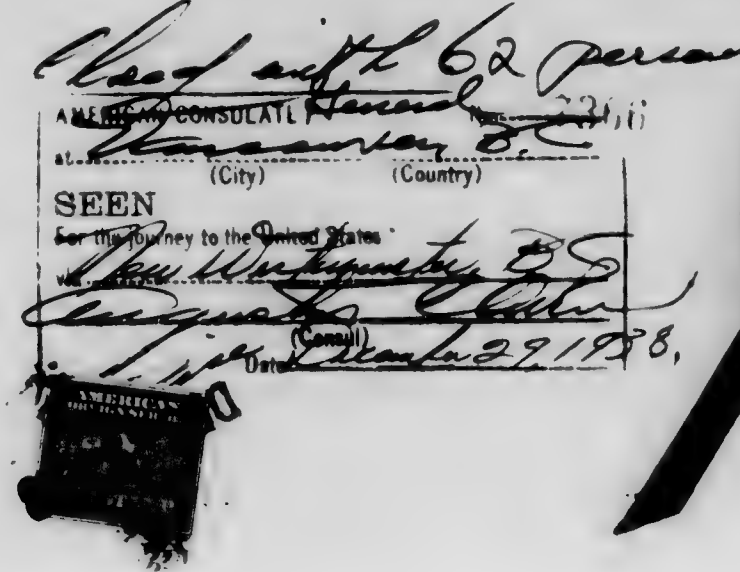 Closed with 62 persons
AMERICAN CONSULATE General No. 3366
at Vancouver B.C.
(City) (Country)
SEEN
For the journey to the United States
via New Westminster, B.C.
(Consul)
Date December 29, 1938,
AMERICAN